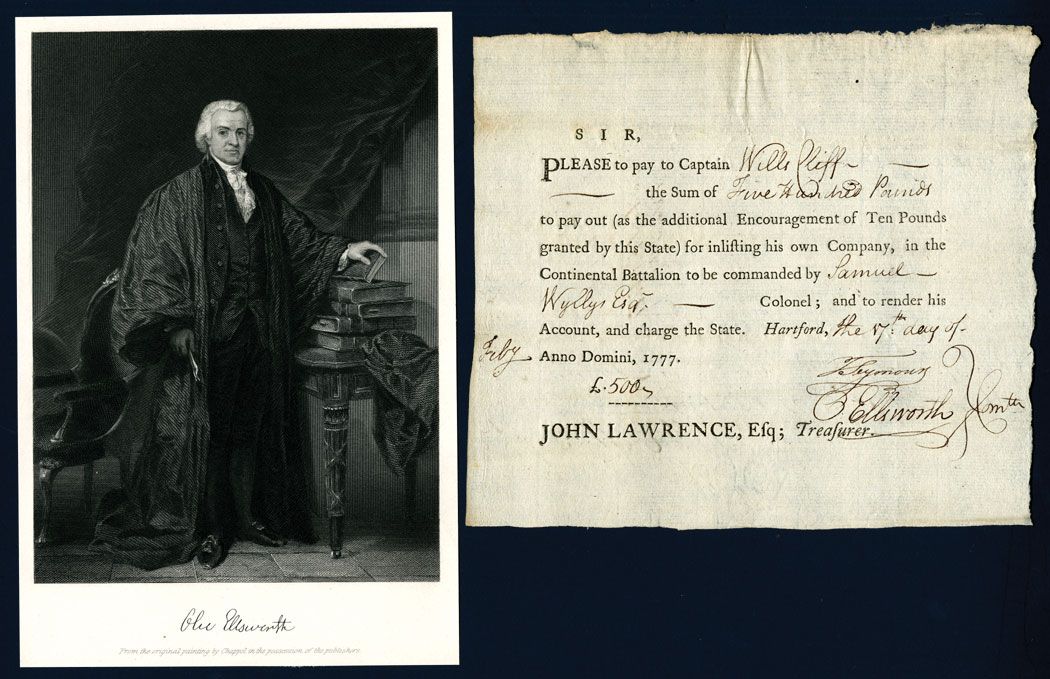 Olivr Ellsworth
From the original painting by Chappel in the possession of the publishers.
S I R,
PLEASE to pay to Captain Wills Cliff
the Sum of Five Hundred Pounds
to pay out (as the additional Encouragement of Ten Pounds
granted by this State) for inliſting his own Company, in the
Continental Battalion to be commanded by Samuel
Wyllys Esqr. Colonel; and to render his
Account, and charge the State. Hartford, the 17th day of
Feby Anno Domini, 1777.
£.500
T Seymour
O Ellsworth Comtte
JOHN LAWRENCE, Eſq; Treaſurer.